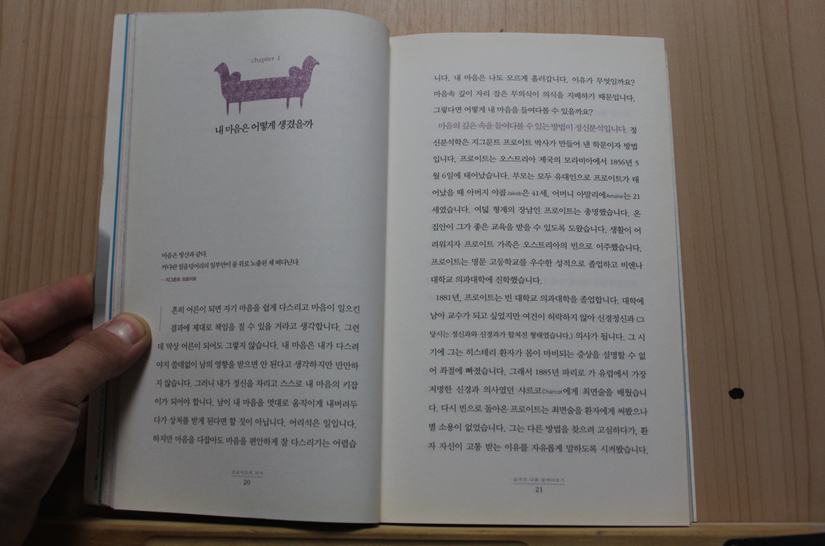 Chapter 1
내 마음은 어떻게 생겼을까
마음은 빙산과 같다.
커다란 얼음덩어리의 일부만이 물 위로 노출된 채 떠다닌다.
—지그문트 프로이트
흔히 어른이 되면 자기 마음을 쉽게 다스리고 마음이 일으킨
결과에 제대로 책임을 질 수 있을 거라고 생각합니다. 그런
데 막상 어른이 되어도 그렇지 않습니다. 내 마음은 내가 다스려
야지 쓸데없이 남의 영향을 받으면 안 된다고 생각하지만 만만하
지 않습니다. 그러니 내가 정신을 차리고 스스로 내 마음의 키잡
이가 되어야 합니다. 남이 내 마음을 멋대로 움직이게 내버려두
다가 상처를 받게 된다면 할 짓이 아닙니다. 어리석은 일입니다.
하지만 마음을 다잡아도 마음을 편안하게 잘 다스리기는 어렵습
프로이트의 의자
20
니다. 내 마음은 나도 모르게 흘러갑니다. 이유가 무엇일까요?
마음속 깊이 자리 잡은 무의식이 의식을 지배하기 때문입니다.
그렇다면 어떻게 내 마음을 들여다볼 수 있을까요?
마음의 깊은 속을 들여다볼 수 있는 방법이 정신분석입니다. 정
신분석학은 지그문트 프로이트 박사가 만들어 낸 학문이자 방법
입니다. 프로이트는 오스트리아 제국의 모라비아에서 1856년 5
월 6일에 태어났습니다. 부모는 모두 유대인으로 프로이트가 태
어났을 때 아버지 야콥Jakob은 41세, 어머니 아말리에Amalie는 21
세였습니다. 여덟 형제의 장남인 프로이트는 총명했습니다. 온
집안이 그가 좋은 교육을 받을 수 있도록 도왔습니다. 생활이 어
려워지자 프로이트 가족은 오스트리아의 빈으로 이주했습니다.
프로이트는 명문 고등학교를 우수한 성적으로 졸업하고 비엔나
대학교 의과대학에 진학했습니다.
1881년, 프로이트는 빈 대학교 의과대학을 졸업합니다. 대학에
남아 교수가 되고 싶었지만 여건이 허락하지 않아 신경정신과(그
당시는 정신과와 신경과가 합쳐진 형태였습니다.) 의사가 됩니다. 그 시
기에 그는 히스테리 환자가 몸이 마비되는 증상을 설명할 수 없
어 좌절에 빠졌습니다. 그래서 1885년 파리로 가 유럽에서 가장
저명한 신경과 의사였던 샤르코Charcot에게 최면술을 배웠습니
다. 다시 빈으로 돌아온 프로이트는 최면술을 환자에게 써봤으나
별 소용이 없었습니다. 그는 다른 방법을 찾으려 고심하다가, 환
자 자신이 고통 받는 이유를 자유롭게 말하도록 시켜봤습니다.
숨겨진 나를 들여다보기
21